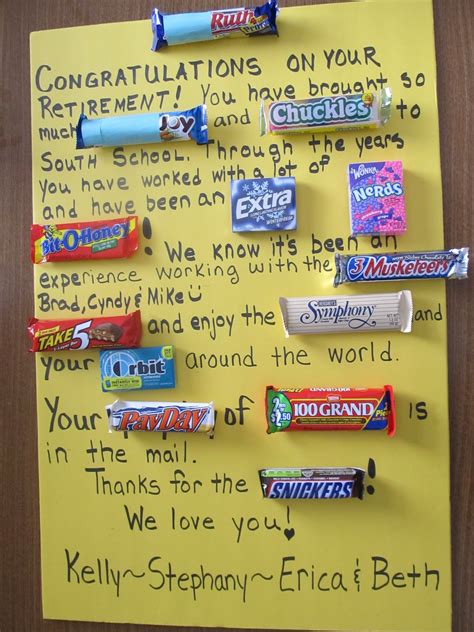 Ruth
CONGRATULATIONS ON YOUR
RETIREMENT! You have brought so
much Joy and Chuckles to
South School. Through the years
you have worked with a lot of
WONKA NERDS
and have been an Extra
Bit-O-Honey ! We know it's been an
experience working with the 3 Musketeers
Brad, Cyndy & Mike
TAKE 5 and enjoy the Symphony and
your Orbit around the world.
Your PayDay of 2 FOR $2.50 100 GRAND is
in the mail.
Thanks for the SNICKERS!
We love you!
Kelly~Stephany~Erica & Beth